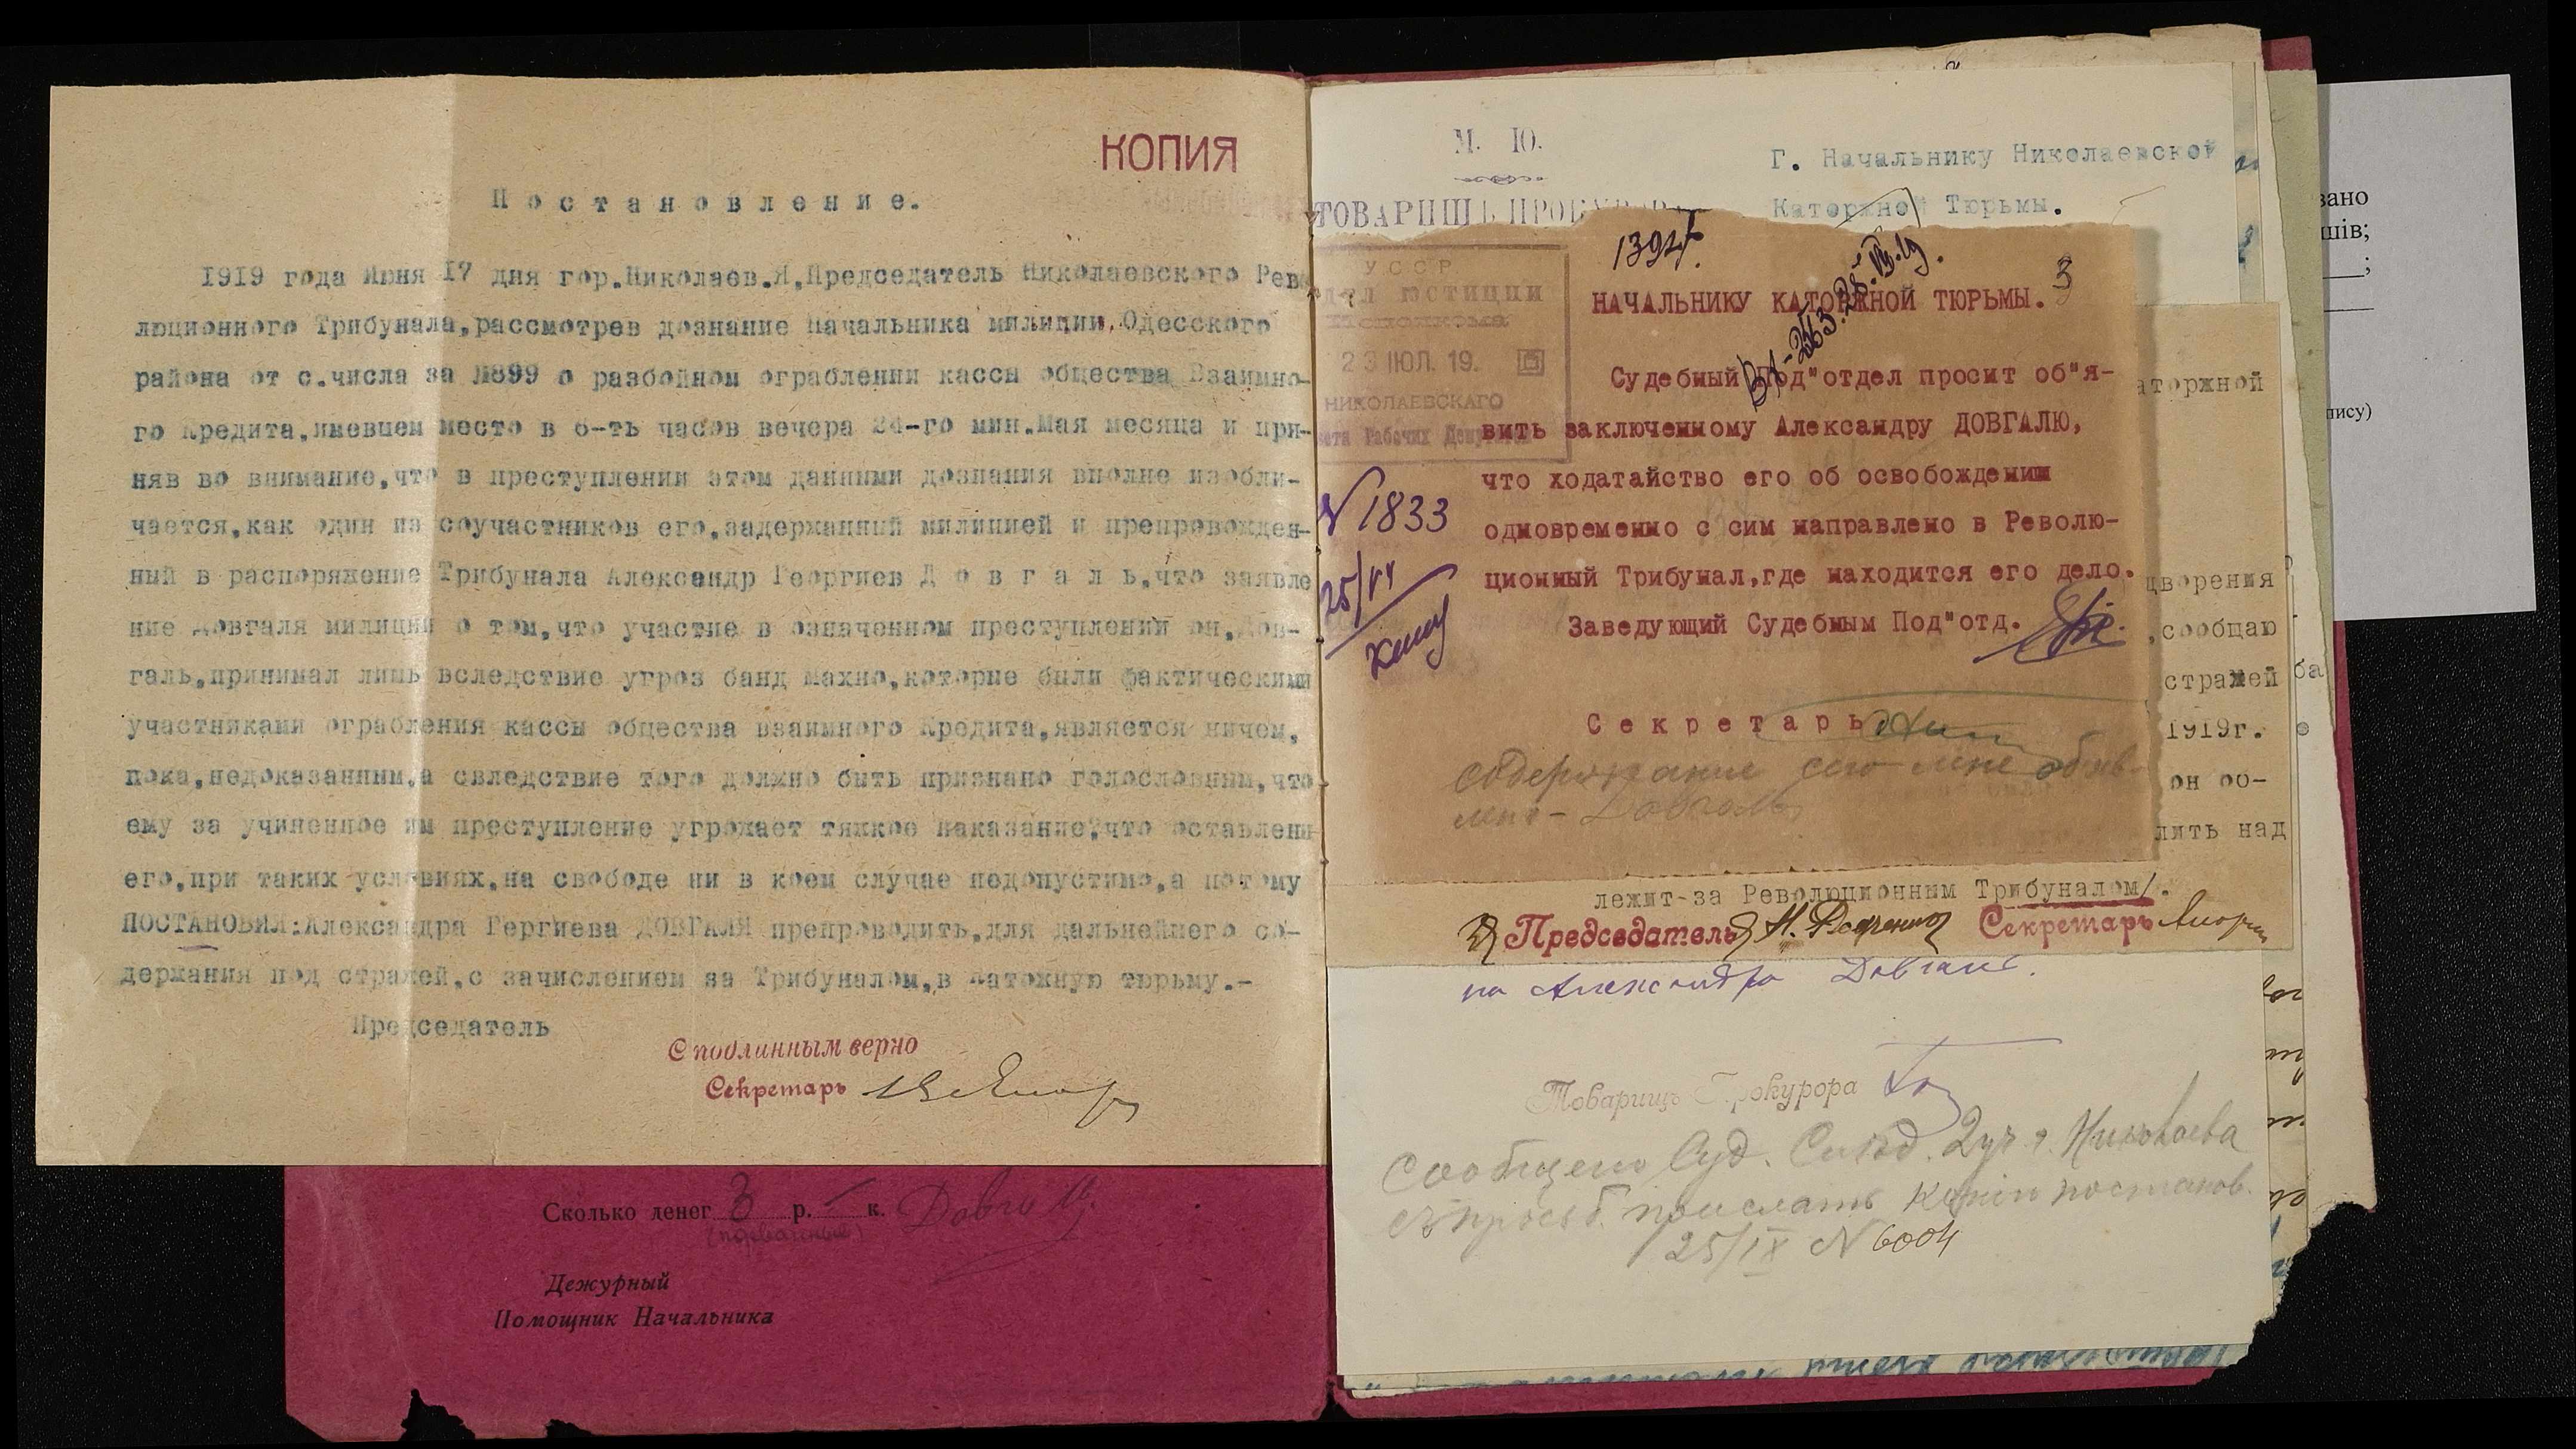 КОПИЯ
Постановление.
1919 года Июня 17 дня гор.Николаев.Я,Председатель Николаевского Рево
люционного Трибунала,рассмотрев дознание Начальника милиции,Одесского
района от с.числа за №899 о разбойном ограблении кассы общества Взаимно-
го Кредита,имевшем место в 6-ть часов вечера 24-го мин.Мая месяца и при-
няв во внимание,что в преступлении этом данными дознания вполне изобли-
чается,как один из соучастников его,задержанный милицией и препровожден-
ный в распоряжение Трибунала Александр Георгиев Довгаль,что заявле
ние Довгаля милиции о том,что участие в означенном преступлении он,Дов-
галь,принимал лишь вследствие угроз банд Махно,которые были фактическими
участниками ограбления кассы общества взаимного Кредита,является ничем,
пока,недоказанным,а свледствие того должно быть признано голословным,что
ему за учиненное им преступление угрожает тяжкое наказание,что оставлени
его,при таких условиях,на свободе ни в коем случае недопустимо,а потому
ПОСТАНОВИЛ:Александра Гергиева ДОВГАЛЯ препроводить,для дальнейшего со-
держания под стражей,с зачислением за Трибуналом,в Катожную тюрьму.-
Председатель
С подлинным верно
Секретарь
Сколько денег 3 р. - к.
Дежурный
Помощник Начальника
М. Ю.
ТОВАРИЩЪ ПРОКУРОРА
Г. Начальнику Николаевской
Каторжной Тюрьмы.
У.С.С.Р.
юстиции
Исполкома
23 ИЮЛ. 19.
НИКОЛАЕВСКАГО
Рабочих
1394
3
НАЧАЛЬНИКУ КАТОРЖНОЙ ТЮРЬМЫ.
Судебный Под"отдел просит об"я-
вить заключенному Александру ДОВГАЛЮ,
что ходатайство его об освобождении
одновременно с сим направлено в Револю-
ционный Трибунал,где находится его дело.
Заведующий Судебным Под"отд.
Секретарь
содержание сего мне объяв-
лено - Довгаль
N 1833
25/VII
аторжной
дворения
,сообщаю
стражей
1919г.
он со-
лить над
лежит-за Революционным Трибуналом/.
Председатель
Секретарь
на Александра Довгаля.
Товарищъ Прокурора
Сообщено Суд. След. 2 уч г. Николаева
с просьб. прислать копию постанов.
25/IX N 6004
вано
шів;
;
пису)
ба